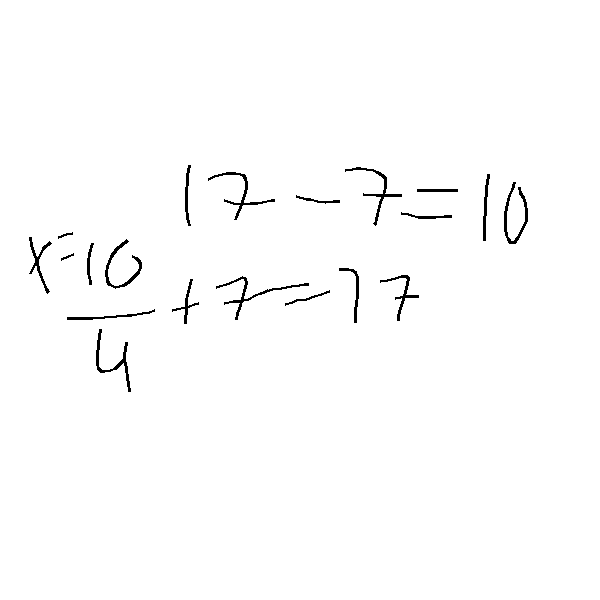 17 - 7 = 10
x = 10
/4 + 7 = 17